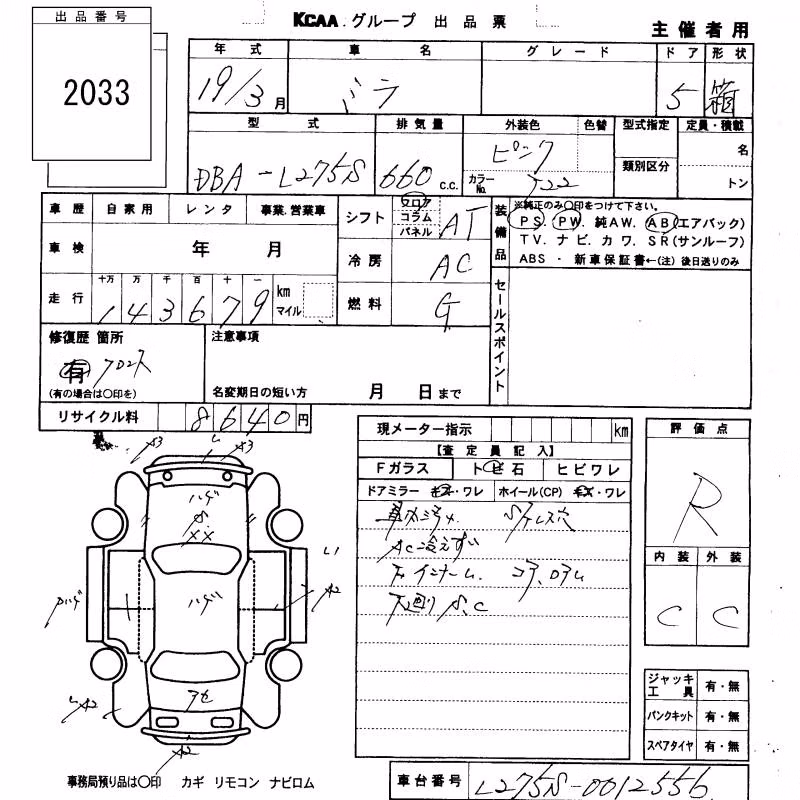 出品番号
2033
KCAA.グループ 出品票
主催者用
年式 車名 グレード ドア 形状
19/3月 ミラ 5 箱
型式 排気量 外装色 色替 型式指定 定員・積載
DBA-L275S 660 c.c. ピンク カラーNo. J22 類別区分 名 トン
車歴 自家用 レンタ 事業.営業車
シフト フロア コラム パネル AT
装備品 ※純正のみ○印をつけて下さい。
PS. PW. 純AW. AB(エアバック)
TV. ナビ. カワ. SR(サンルーフ)
ABS ・ 新車保証書←(注)後日送りのみ
車検 年 月
冷房 AC
走行 十万 万 千 百 十 一
143679 km マイル
燃料 G
セールスポイント
修復歴 箇所
有 クロス
(有の場合は○印を)
注意事項
名変期日の短い方 月 日まで
リサイクル料 8640円
現メーター指示 km
【査定員記入】
Fガラス トビ石 ヒビワレ
ドアミラー キズ・ワレ ホイール(CP) キズ・ワレ
車内汚れ
AC冷えず
コア
S.C
評価点
R
内装 外装
C C
A3 A3
ハゲ
S.
XX
ハゲ
L1
A2
アセ
A2
A2
ジャッキ工具 有・無
パンクキット 有・無
スペアタイヤ 有・無
事務局預り品は○印 カギ リモコン ナビロム
車台番号 L275S-0012556